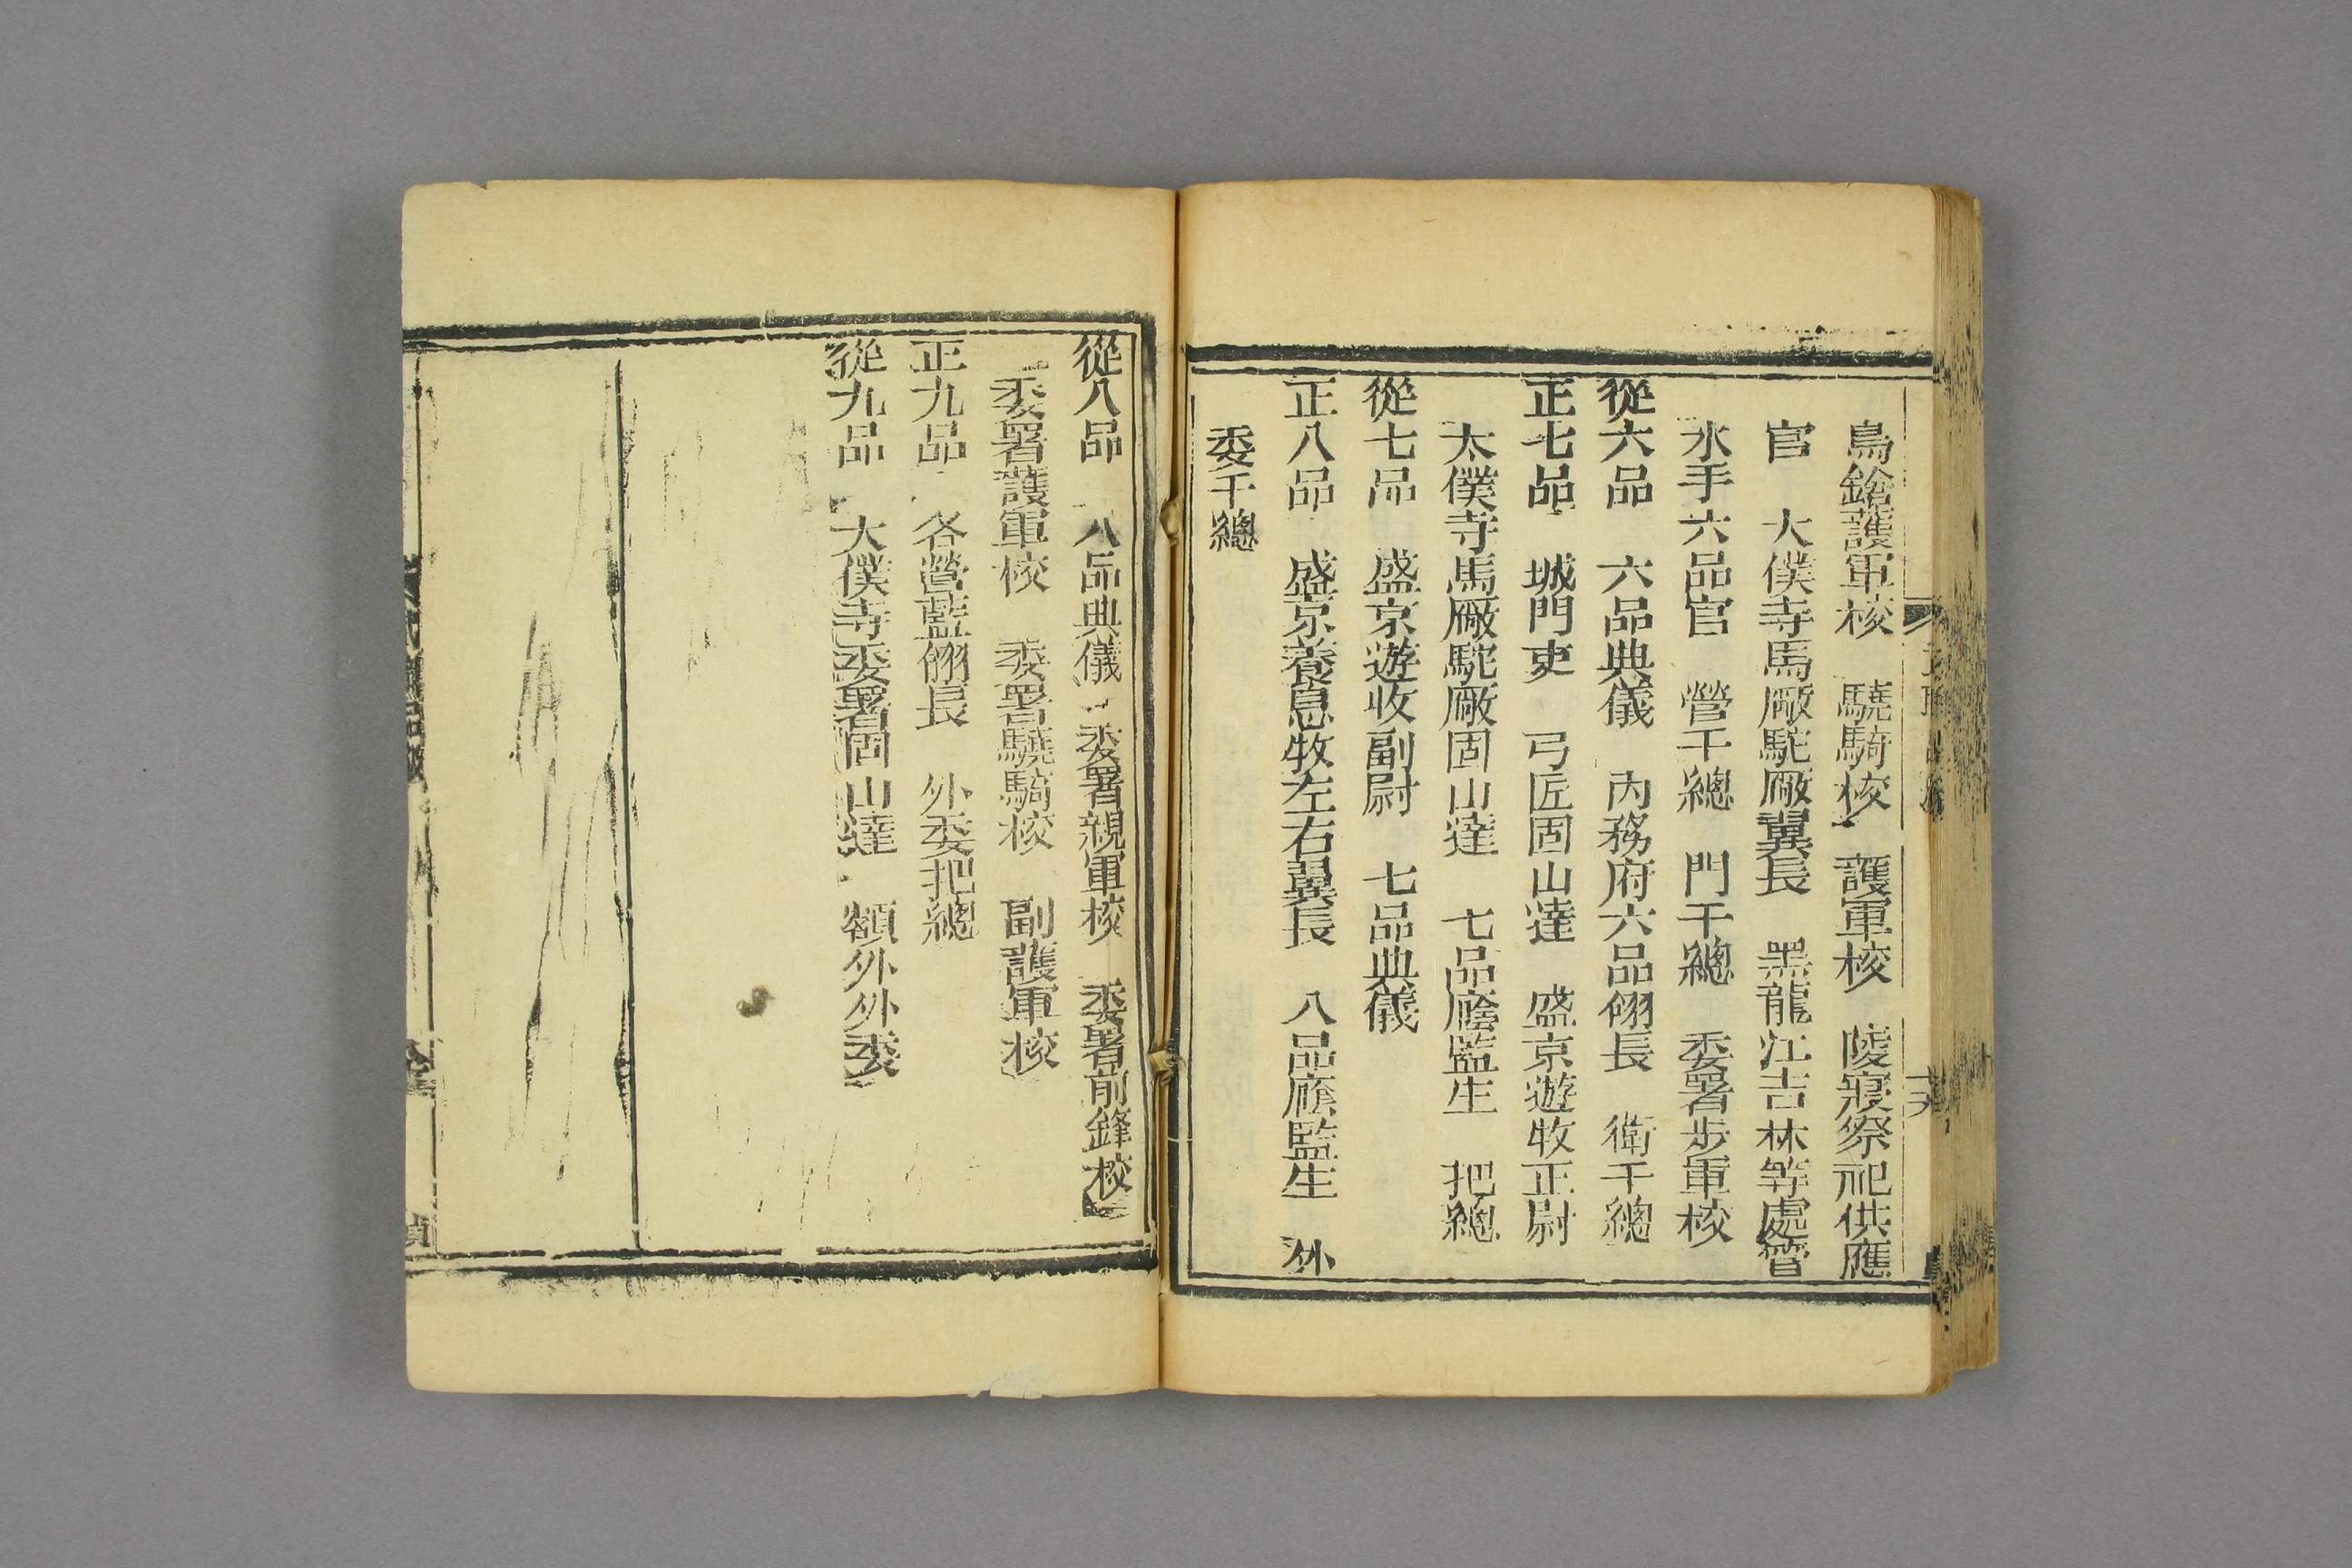 鳥鎗護軍校　驍騎校　護軍校　陵寢祭祀供應
官　大僕寺馬廠駝廠翼長　黑龍江吉林等處管
水手六品官　營千總　門千總　委署步軍校
從六品　六品典儀　內務府六品翎長　衛千總
正七品　城門吏　弓匠固山達　盛京遊牧正尉
太僕寺馬廠駝廠固山達　七品廕監生　把總
從七品　盛京遊收副尉　七品典儀
正八品　盛京養息牧左右翼長　八品廕監生　外
委千總
從八品　八品典儀　委署親軍校　委署前鋒校
委署護軍校　委署驍騎校　副護軍校
正九品　各營藍翎長　外委把總
從九品　大僕寺委署固山達　額外外委